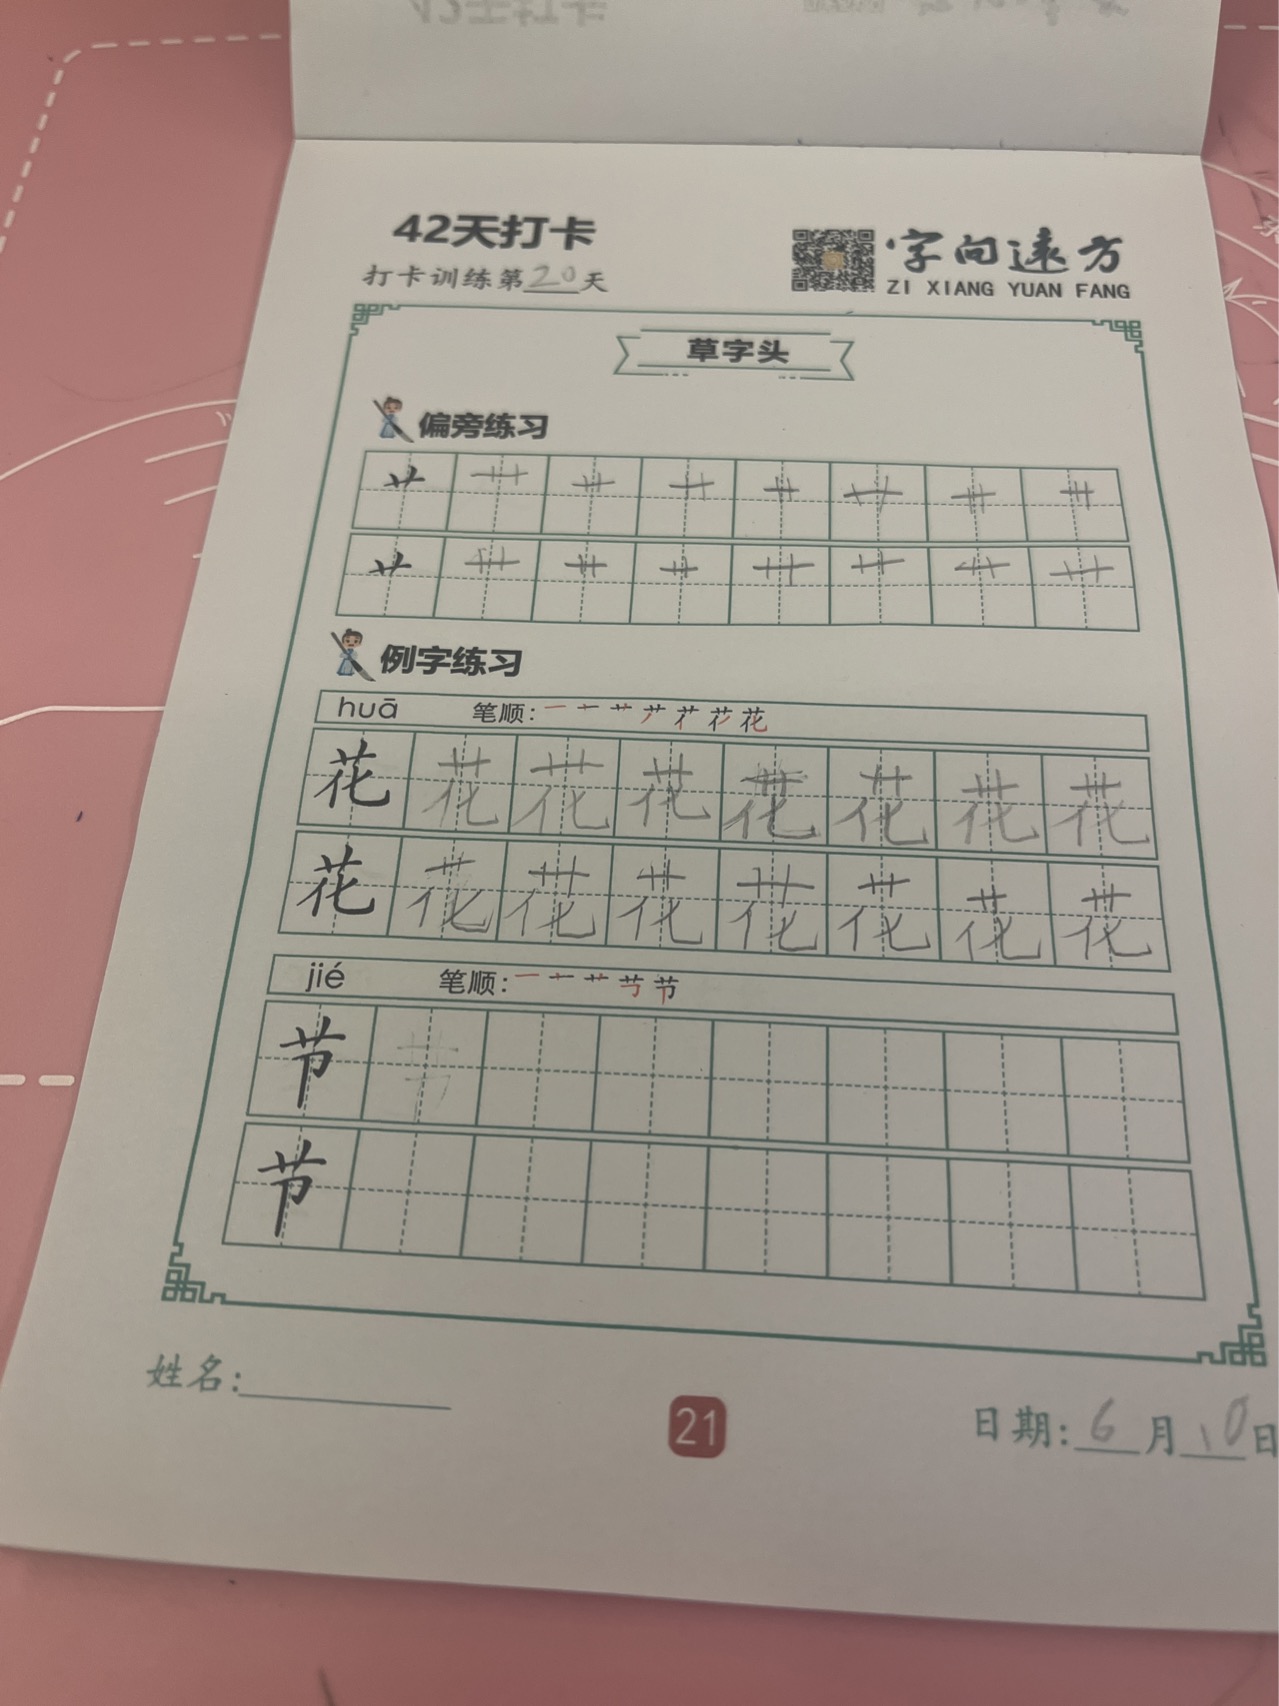 42天打卡
打卡训练第20天
字向远方
ZI XIANG YUAN FANG
草字头
偏旁练习
艹 艹 艹 艹 艹 艹 艹 艹
艹 艹 艹 艹 艹 艹 艹 艹
例字练习
huā 笔顺:
花 花 花 花 花 花 花 花
花 花 花 花 花 花 花 花
jié 笔顺:
节
节
姓名:
21
日期:6月10日